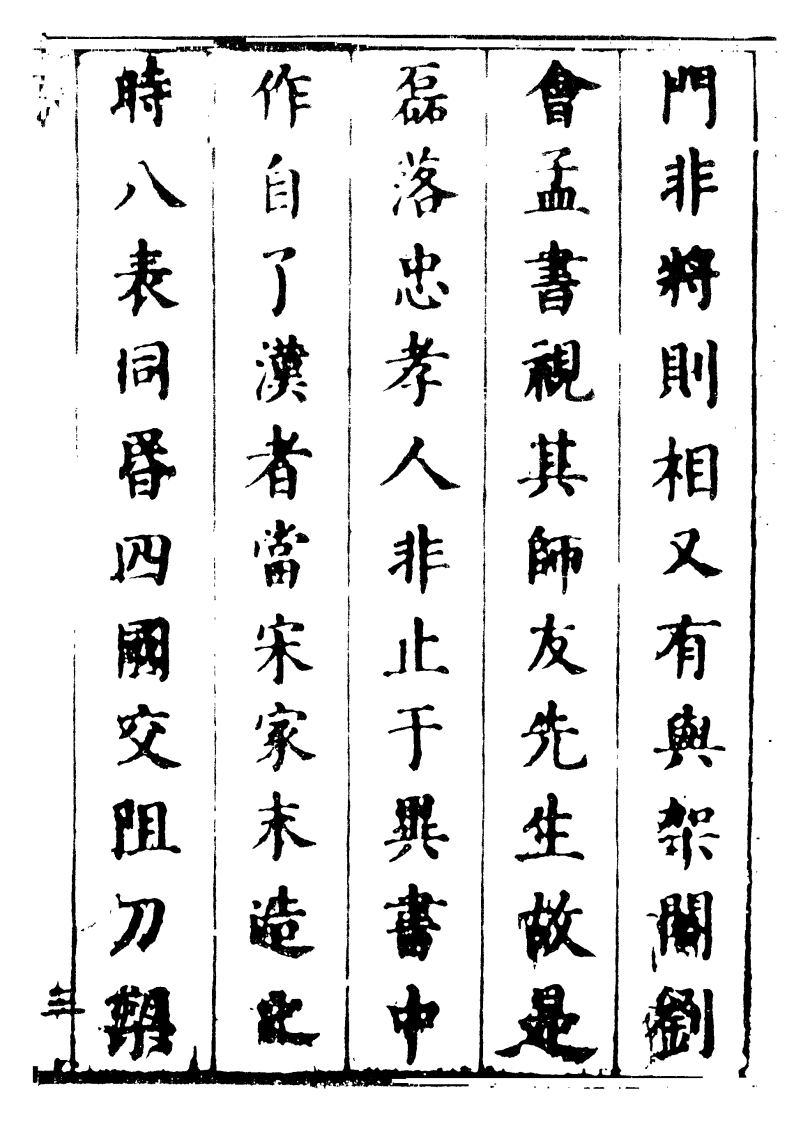 門非將則相又有與架閣劉
會孟書視其師友先生故是
磊落忠孝人非止于書中
作自了漢者當宋家末造之
時八表同昬四國交阻刀
三